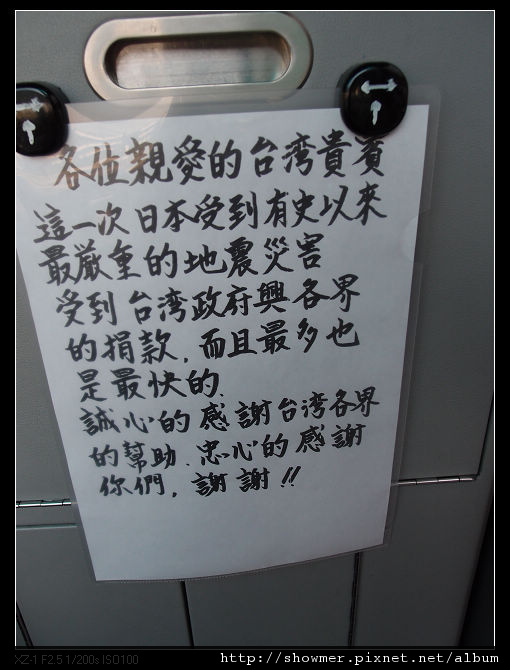 各位親愛的台湾貴賓
這一次日本受到有史以來
最厳重的地震災害
受到台湾政府興各界
的捐款，而且最多也
是最快的、
誠心的感謝台湾各界
的幫助、忠心的感謝
你們，謝謝!!
XZ-1 F2.5 1/200s ISO100
http://showmer.pixnet.net/album